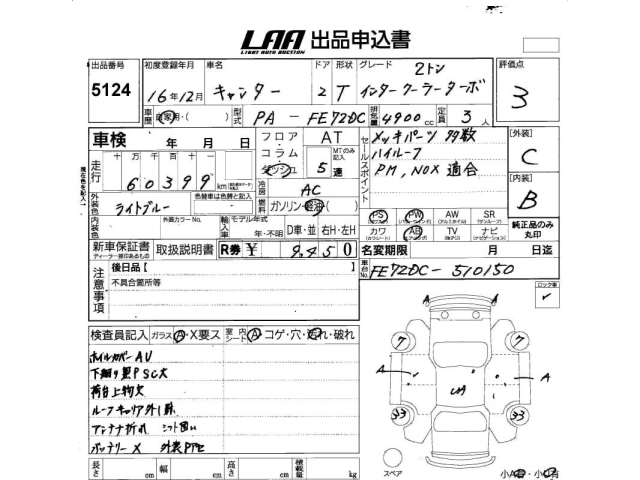 LAA 出品申込書
LIGHT AUTO AUCTION
出品番号
5124
初度登録年月 車名 ドア 形状 グレード
16年12月 キャンター 2 T 2トン
インタークーラーターボ
評価点
3
車歴 自家用・( ) 型式 PA - FE72DC 排気量 4900 cc 定員 3 人
車検 年 月 日
フロア AT
コラム MTのみ記入
ダッシュ 5 速
セールスポイント
メッキパーツ多数
ハイルーフ
PM, NOX 適合
[外装]
C
[内装]
B
走行 十万 万 千 百 十 一
60399 km
冷房 AC
燃料 ガソリン・軽油( )
外装色 ライトブルー
色替車は色替と記入
外装カラーNo.
内装色
輸入車 モデル年式 年・不明 D車・並 右H・左H
PS PW AW SR
カワ AB TV ナビ
純正品のみ丸印
新車保証書 取扱説明書 R券 ¥ 9,450
ディーラー捺印あるもの
名変期限 月 日迄
車台No. FE72DC-510150
注意事項
後日品【 】
不具合箇所等
ロック車
検査員記入 ガラス A・X要ス 室内シート A コゲ・穴・汚れ・破れ
ホイルカバーAU
下廻り製PSC大
荷台上物欠
ルーフキャリア外し跡
アンテナ折れ シフト固い
バッテリーX 外装PTE
A A
7 7
A UA A
33 33
スペア
長さ cm 幅 cm 高さ cm 積載量 kg